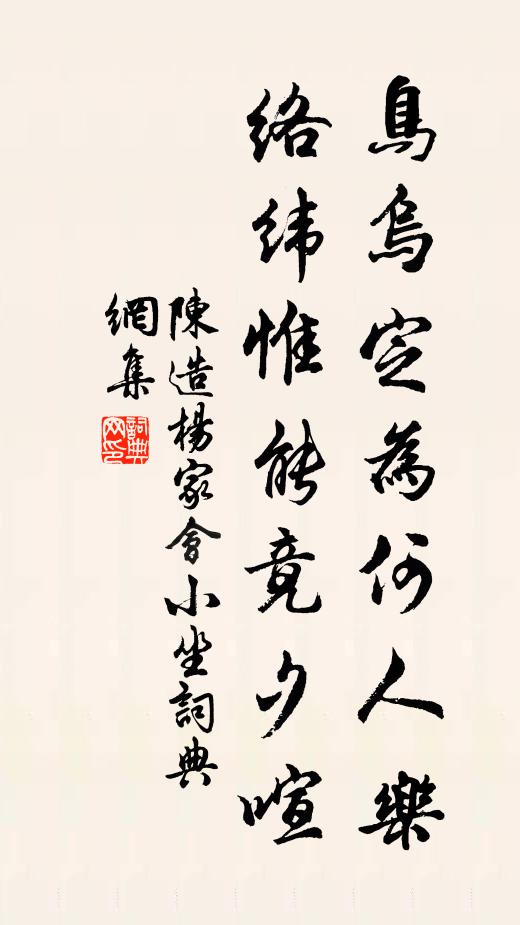 鳥烏定為何人樂
絡緯惟能竟夕喧
陳造楊家會小坐詞典
網集
詞典網印